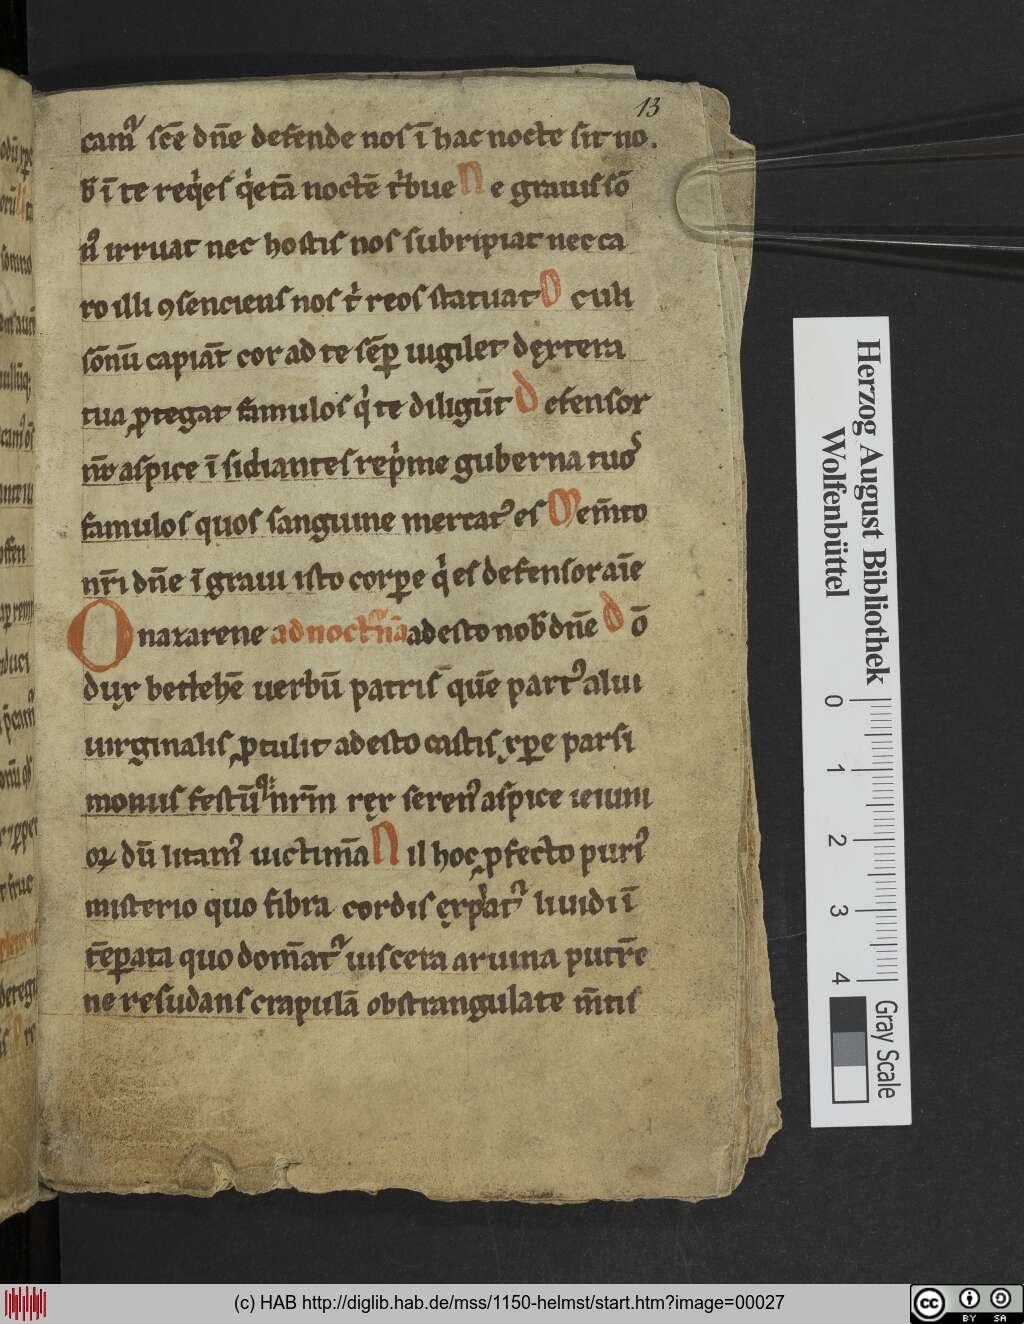 13
camᷣ scē dn̄e defende nos ī hac nocte sit no.
b̄ ī te reqͥes qͥetā noctē tͥbue Ne grauis sō
nꝰ irruat nec hostis nos subripiat nec ca
ro illi ꝯsenciens nos tͥ reos statuat Oculi
sōnū capiāt cor ad te sēꝑ uigilet dextera
tua ꝓtegat famulos qͥ te diligūt Defensor
nr̄ aspice īsidiantes repͥme guberna tuos
famulos quos sanguine mercatꝰ es Mem̄to
nr̄i dn̄e ī graui isto corꝑe qͥ es defensor aīe
O nazarene ad nocťnā adesto nob̄ dn̄e Dō
dux betlehē uerbū patris qūe partꝰ alui
uirginalis ꝓtulit adesto castis xp̄e parsi
moniis festūqͥ nr̄m rex serenꝰ aspice ieiuni
oꝝ dū litamꝰ uictimā Nil hoc ꝓfecto puriꝰ
misterio quo fibra cordis expͥatᷣ liuidi ī
tēꝑata quo dom̄atᷣ uiscera aruina putr̄e
ne resudans crapulā obstrangulare m̄tis
Herzog August Bibliothek
Wolfenbüttel
0 1 2 3 4
Gray Scale
(c) HAB http://diglib.hab.de/mss/1150-helmst/start.htm?image=00027
cc BY SA